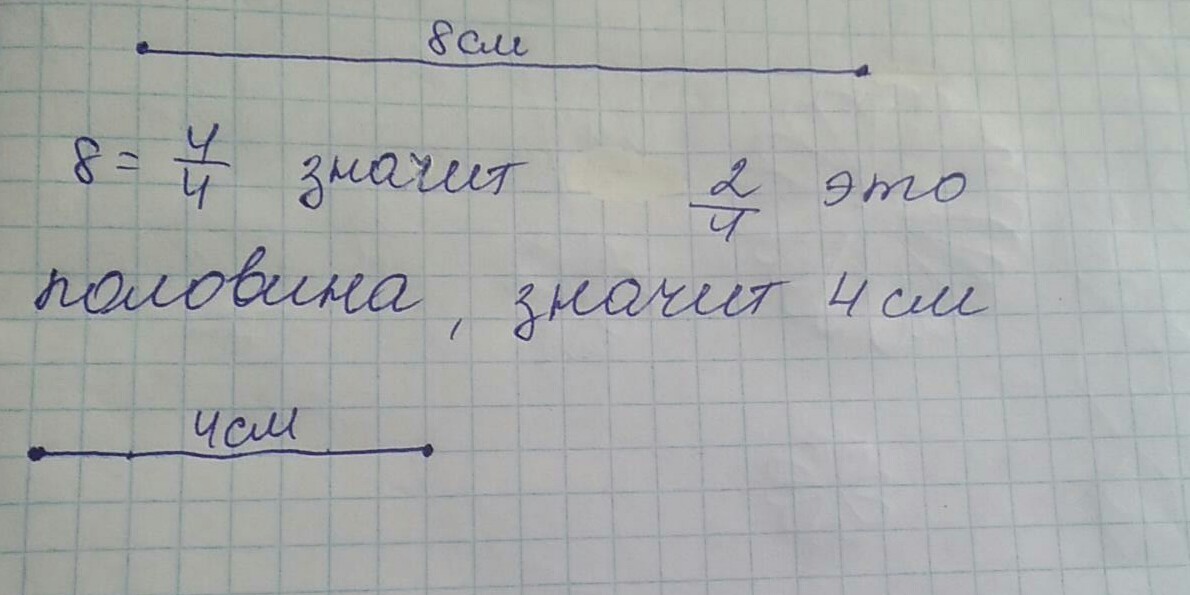 8см
8 = 4/4 значит 2/4 это
половина, значит 4 см
4см